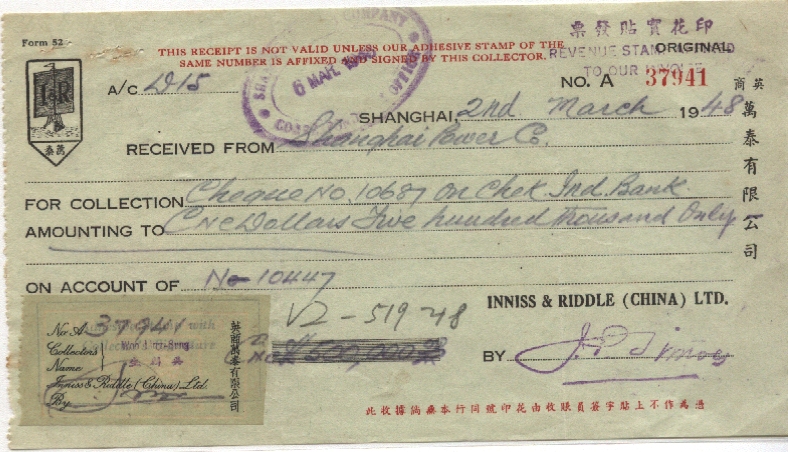 Form 52
THIS RECEIPT IS NOT VALID UNLESS OUR ADHESIVE STAMP OF THE
SAME NUMBER IS AFFIXED AND SIGNED BY THIS COLLECTOR.
票發貼實花印
REVENUE STAMP
ORIGINAL
TO OUR
COMPANY
6 MAR. 
OFFICE
A/C D-15
NO. A 37941
I&R
泰萬
SHANGHAI, 2nd March 1948
RECEIVED FROM Shanghai Power Co.
FOR COLLECTION Cheque No. 10687 on Chek. Ind. Bank
AMOUNTING TO CNC Dollars Five hundred thousand Only
ON ACCOUNT OF No 10447
英商萬泰有限公司
V2-519 48
INNISS & RIDDLE (CHINA) LTD.
CNC$ 500,000
BY
No. A 37941
Collector's
Name
Inniss & Riddle (China) Ltd.
By
英商萬泰有限公司
此收據倘無本行同號印花由收賬員簽字貼上不作為憑